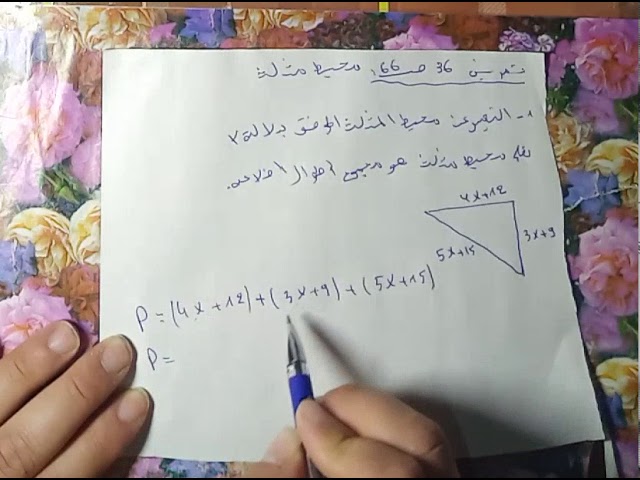 تمرين 36 ص 66، محيط مثلث
1- التعبير عن محيط المثلث المرفق بدلالة x
محيط مثلث هو مجموع أطوال أضلاعه.
4x+12
3x+9
5x+15
P=(4x+12)+(3x+9)+(5x+15)
P=